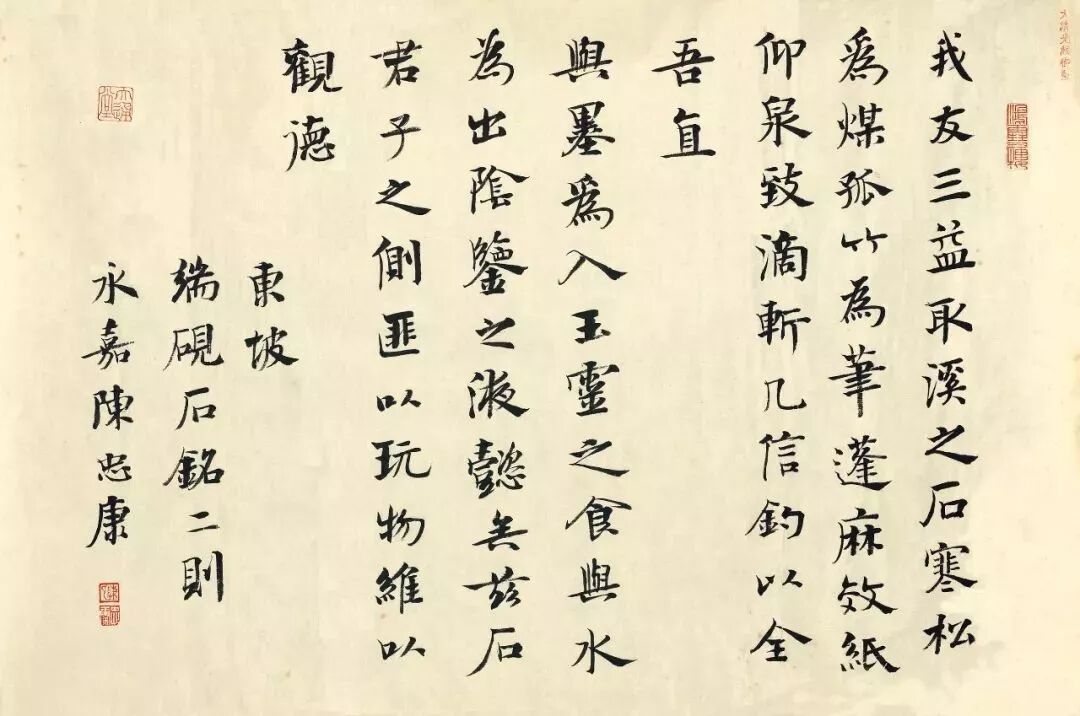 我友三益取溪之石寒松
爲煤孤竹爲筆蓬麻效紙
仰泉致滴斬几信釣以全
吾直
與墨爲入玉靈之食與水
為出陰鑒之液懿矣茲石
君子之側匪以玩物維以
觀德
東坡
端硯石銘二則
永嘉陳忠康